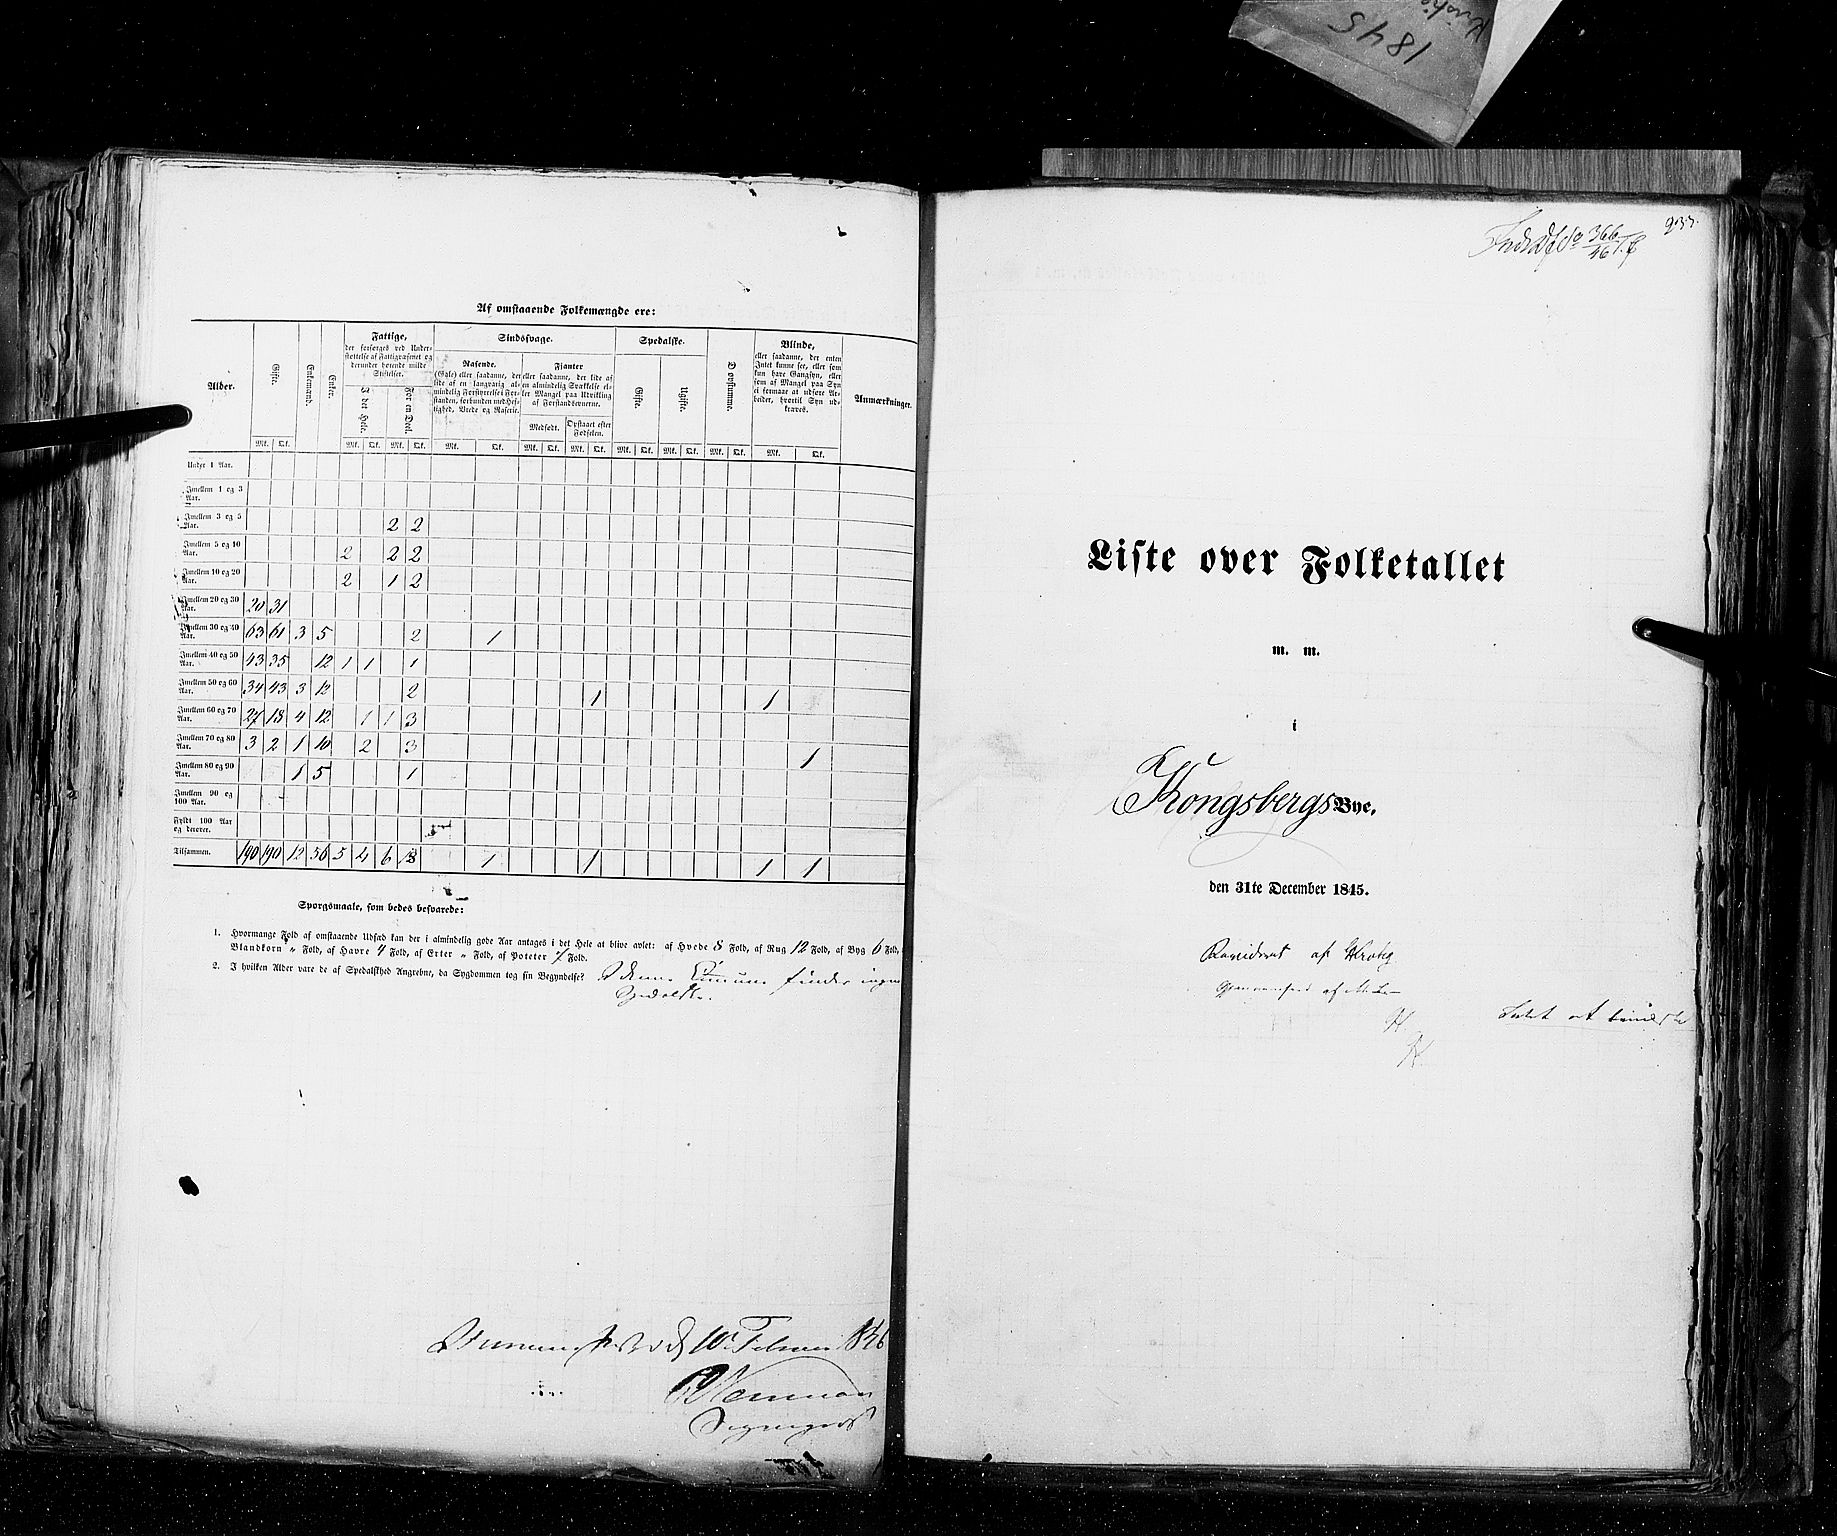 1845
Af omstaaende Folkemængde ere:
Alder.
Gifte.
Enkemænd.
Enker.
Fattige,
der forsørges ved Under-
støttelse af Fattigvæsenet og
derunder hørende milde
Stiftelser.
I det Hele.
For en Deel.
Sindssvage.
Rasende.
(Gale) eller saadanne, der
lide af en langvarig al-
mindelig Forstyrrelse i For-
standen, forbunden med Hef-
tighed, Vrede og Raserie.
Fjanter
eller saadanne, der lide af
en almindelig Svækkelse el-
ler Mangel paa Udvikling
af Forstandsevnerne.
Medfødt.
Opstaaet efter
Fødselen.
Spedalske.
Gifte.
Ugifte.
Døvstumme.
Blinde,
eller saadanne, der enten
Intet kunne see, eller som
kun have Gangsyn, eller
som af Mangel paa Syn
ei formaae at udføre Ar-
beider, hvortil Syn ud-
kræves.
Anmærkninger.
Mk. Qk. Mk. Qk. Mk. Qk. Mk. Qk. Mk. Qk. Mk. Qk. Mk. Qk. Mk. Qk. Mk. Qk. Mk. Qk.
Under 1 Aar.
Imellem 1 og 3
Aar.
Imellem 3 og 5
Aar. 2 2
Imellem 5 og 10
Aar. 2 2 2
Imellem 10 og 20
Aar. 2 1 2
Imellem 20 og 30
Aar. 20 31
Imellem 30 og 40
Aar. 63 61 3 5 2 1
Imellem 40 og 50
Aar. 43 35 12 1 1 1
Imellem 50 og 60
Aar. 34 43 3 12 2 1 1
Imellem 60 og 70
Aar. 27 18 4 12 1 1 3
Imellem 70 og 80
Aar. 3 2 1 10 2 3 1
Imellem 80 og 90
Aar. 1 5 1
Imellem 90 og
100 Aar.
Fyldt 100 Aar
og derover.
Tilsammen. 190 190 12 56 5 4 6 18 1 1 1 1
Spørgsmaale, som bedes besvarede:
1. Hvormange Fold af omstaaende Udsæd kan der i almindelig gode Aar antages i det Hele at blive avlet: af Hvede 8 Fold, af Rug 12 Fold, af Byg 6 Fold,
Blandkorn " Fold, af Havre 4 Fold, af Erter " Fold, af Poteter 7 Fold.
2. I hvilken Alder vare de af Spedalskhed Angrebne, da Sygdommen tog sin Begyndelse?
10 Februar 1846
366
46
Liste over Folketallet
m. m.
i
Kongsbergs Bye.
den 31te December 1845.
Revideret af